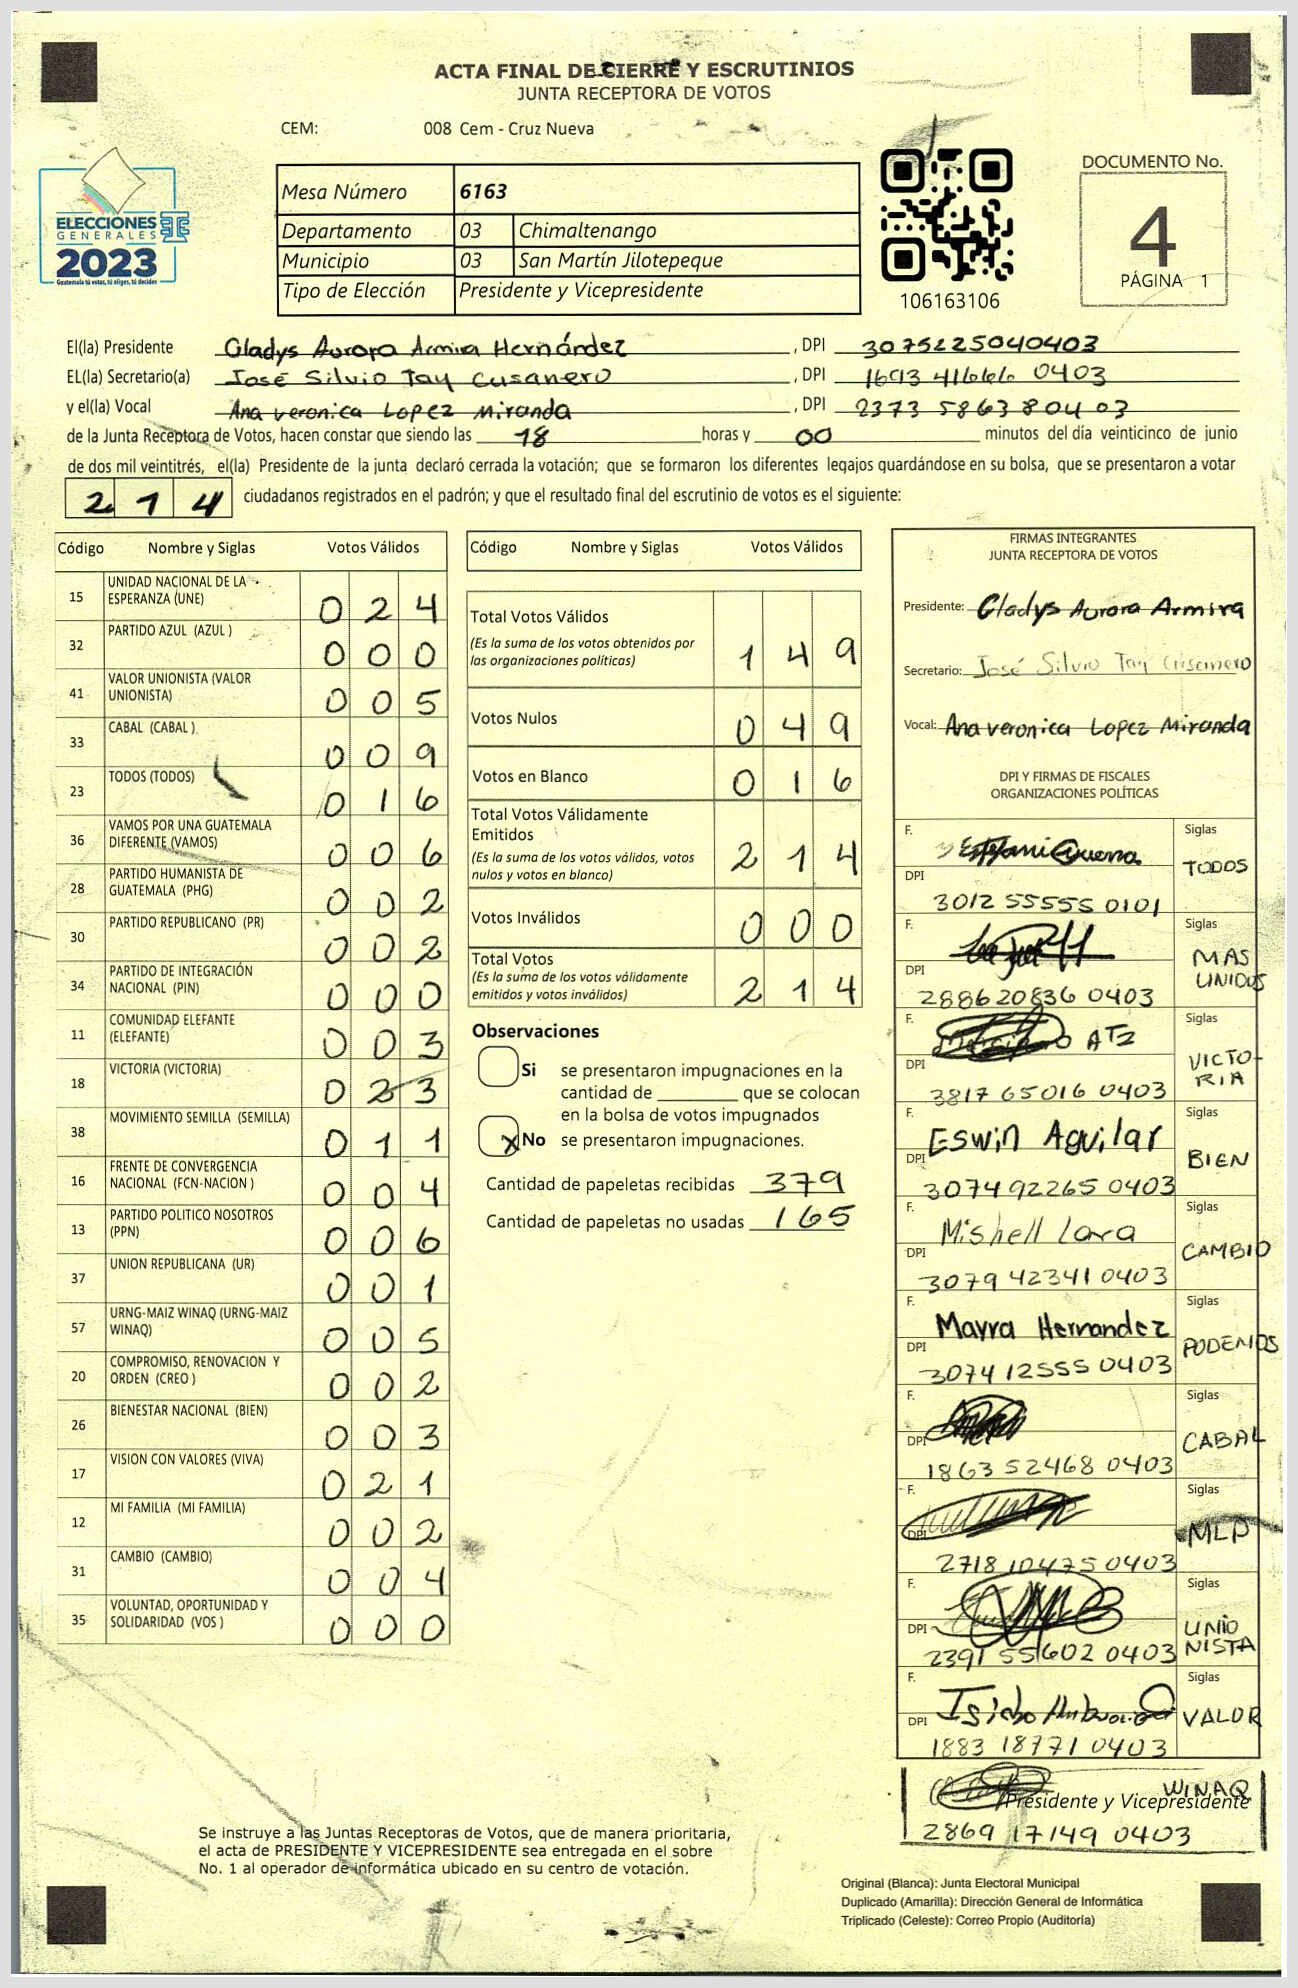 ACTA FINAL DE CIERRE Y ESCRUTINIOS
JUNTA RECEPTORA DE VOTOS
CEM: 008 Cem - Cruz Nueva
ELECCIONES
GENERALES
2023
Guatemala tú votas, tú eliges, tú decides
Mesa Número 6163
Departamento 03 Chimaltenango
Municipio 03 San Martín Jilotepeque
Tipo de Elección Presidente y Vicepresidente
106163106
DOCUMENTO No.
4
PÁGINA 1
El(la) Presidente Gladys Aurora Armira Hernández, DPI 3075225040403
EL(la) Secretario(a) José Silvio Tay Cusanero, DPI 1693 41666 0403
y el(la) Vocal Ana veronica Lopez Miranda, DPI 2373 58638 0403
de la Junta Receptora de Votos, hacen constar que siendo las 18 horas y 00 minutos del día veinticinco de junio
de dos mil veintitrés, el(la) Presidente de la junta declaró cerrada la votación; que se formaron los diferentes legajos guardándose en su bolsa, que se presentaron a votar
214 ciudadanos registrados en el padrón; y que el resultado final del escrutinio de votos es el siguiente:
Código Nombre y Siglas Votos Válidos
15 UNIDAD NACIONAL DE LA ESPERANZA (UNE) 024
32 PARTIDO AZUL (AZUL ) 000
41 VALOR UNIONISTA (VALOR UNIONISTA) 005
33 CABAL (CABAL ) 009
23 TODOS (TODOS) 016
36 VAMOS POR UNA GUATEMALA DIFERENTE (VAMOS) 006
28 PARTIDO HUMANISTA DE GUATEMALA (PHG) 002
30 PARTIDO REPUBLICANO (PR) 002
34 PARTIDO DE INTEGRACIÓN NACIONAL (PIN) 000
11 COMUNIDAD ELEFANTE (ELEFANTE) 003
18 VICTORIA (VICTORIA) 023
38 MOVIMIENTO SEMILLA (SEMILLA) 011
16 FRENTE DE CONVERGENCIA NACIONAL (FCN-NACION ) 004
13 PARTIDO POLITICO NOSOTROS (PPN) 006
37 UNION REPUBLICANA (UR) 001
57 URNG-MAIZ WINAQ (URNG-MAIZ WINAQ) 005
20 COMPROMISO, RENOVACION Y ORDEN (CREO ) 002
26 BIENESTAR NACIONAL (BIEN) 003
17 VISION CON VALORES (VIVA) 021
12 MI FAMILIA (MI FAMILIA) 002
31 CAMBIO (CAMBIO) 004
35 VOLUNTAD, OPORTUNIDAD Y SOLIDARIDAD (VOS ) 000
Código Nombre y Siglas Votos Válidos
Total Votos Válidos 149
(Es la suma de los votos obtenidos por
las organizaciones políticas)
Votos Nulos 049
Votos en Blanco 016
Total Votos Válidamente
Emitidos 214
(Es la suma de los votos válidos, votos
nulos y votos en blanco)
Votos Inválidos 000
Total Votos 214
(Es la suma de los votos válidamente
emitidos y votos inválidos)
Observaciones
Si se presentaron impugnaciones en la
cantidad de ________ que se colocan
en la bolsa de votos impugnados
X No se presentaron impugnaciones.
Cantidad de papeletas recibidas 379
Cantidad de papeletas no usadas 165
FIRMAS INTEGRANTES
JUNTA RECEPTORA DE VOTOS
Presidente: Gladys Aurora Armira
Secretario: José Silvio Tay Cusanero
Vocal: Ana veronica Lopez Miranda
DPI Y FIRMAS DE FISCALES
ORGANIZACIONES POLÍTICAS
F. Siglas
TODOS
DPI
3012 55555 0101
F. Siglas
MAS
UNIDOS
DPI
2886 20836 0403
F. Siglas
VICTO-
RIA
DPI
3817 65016 0403
F. Eswin Aguilar Siglas
BIEN
DPI
3074 92265 0403
F. Mishell Lara Siglas
CAMBIO
DPI
3079 42341 0403
F. Mayra Hernandez Siglas
PODEMOS
DPI
3074 12555 0403
F. Siglas
CABAL
DPI
1863 52468 0403
F. Siglas
MLP
DPI
2718 10475 0403
F. Siglas
UNIO
NISTA
DPI
2391 55602 0403
F. Siglas
VALOR
DPI
1883 18771 0403
WINAQ
Presidente y Vicepresidente
2869 17149 0403
Se instruye a las Juntas Receptoras de Votos, que de manera prioritaria,
el acta de PRESIDENTE Y VICEPRESIDENTE sea entregada en el sobre
No. 1 al operador de informática ubicado en su centro de votación.
Original (Blanca): Junta Electoral Municipal
Duplicado (Amarilla): Dirección General de Informática
Triplicado (Celeste): Correo Propio (Auditoría)